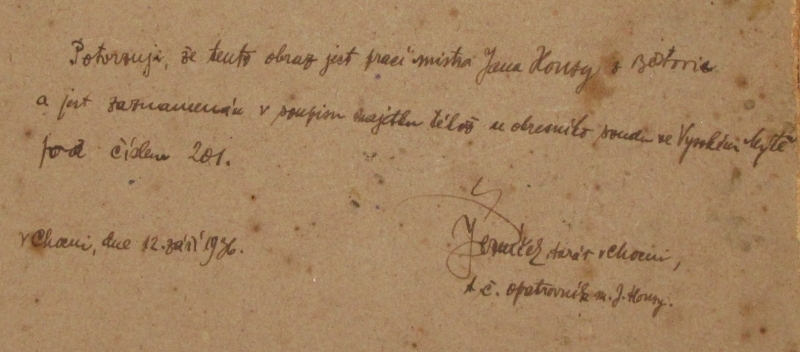 Potvrzuji, že tento obraz jest prací mistra Jana Honsy z Běstovic
a jest zaznamenán v soupisu majetku téhož u okresního soudu ve Vysokém Mýtě
pod číslem 201.
v Chocni, dne 12. září 1936.
farář v Chocni,
t. č. opatrovník m. J. Honsy.